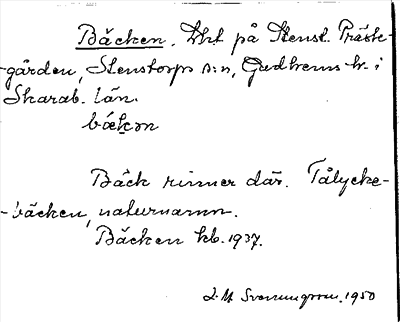 Bäcken. Lht på Stenst. Präste-
gården, Stenstorps s:n, Gudhems h. i
Skarab. län.
bäkən
Bäck rinner där. Tålycke-
-bäcken, naturnamn.
Bäcken kb. 1937.
1950